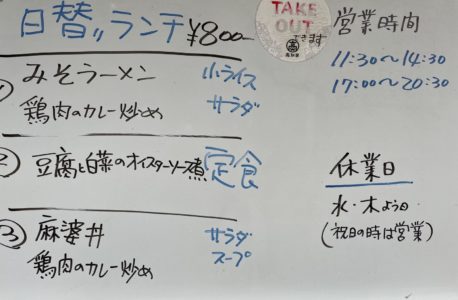 日替ランチ ¥800-
TAKE
OUT
できます
営業時間
11:30〜14:30
17:00〜20:30
みそラーメン 小ライス
鶏肉のカレー炒め サラダ
② 豆腐と白菜のオイスターソース煮 定食
休業日
水・木よう日
(祝日の時は営業)
③ 麻婆丼 サラダ
鶏肉のカレー炒め スープ